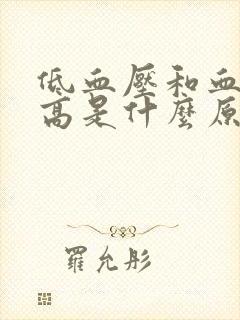 低血壓和血
高是什麼原
羅允彤